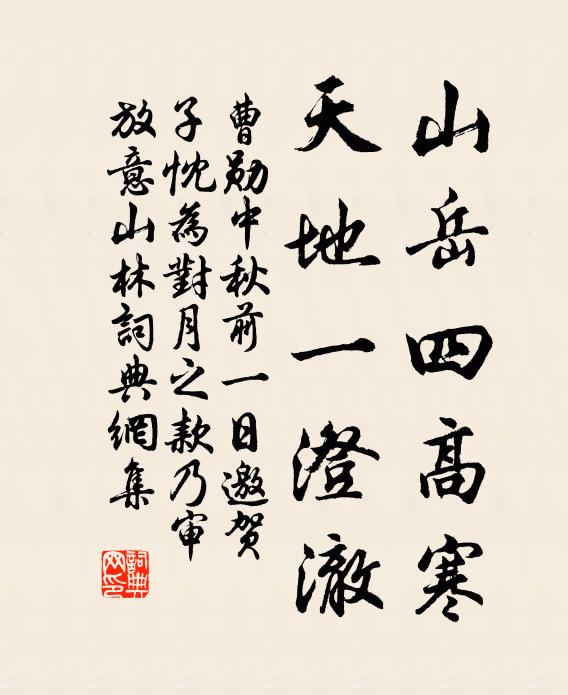 山岳四高寒
天地一澄澈
曹勛中秋前一日邀贺
子忱為對月之款乃审
放意山林詞典網集
詞典网印